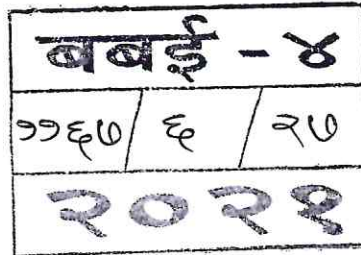 बबई - ४
११६७/ ६ / २७
२०२१